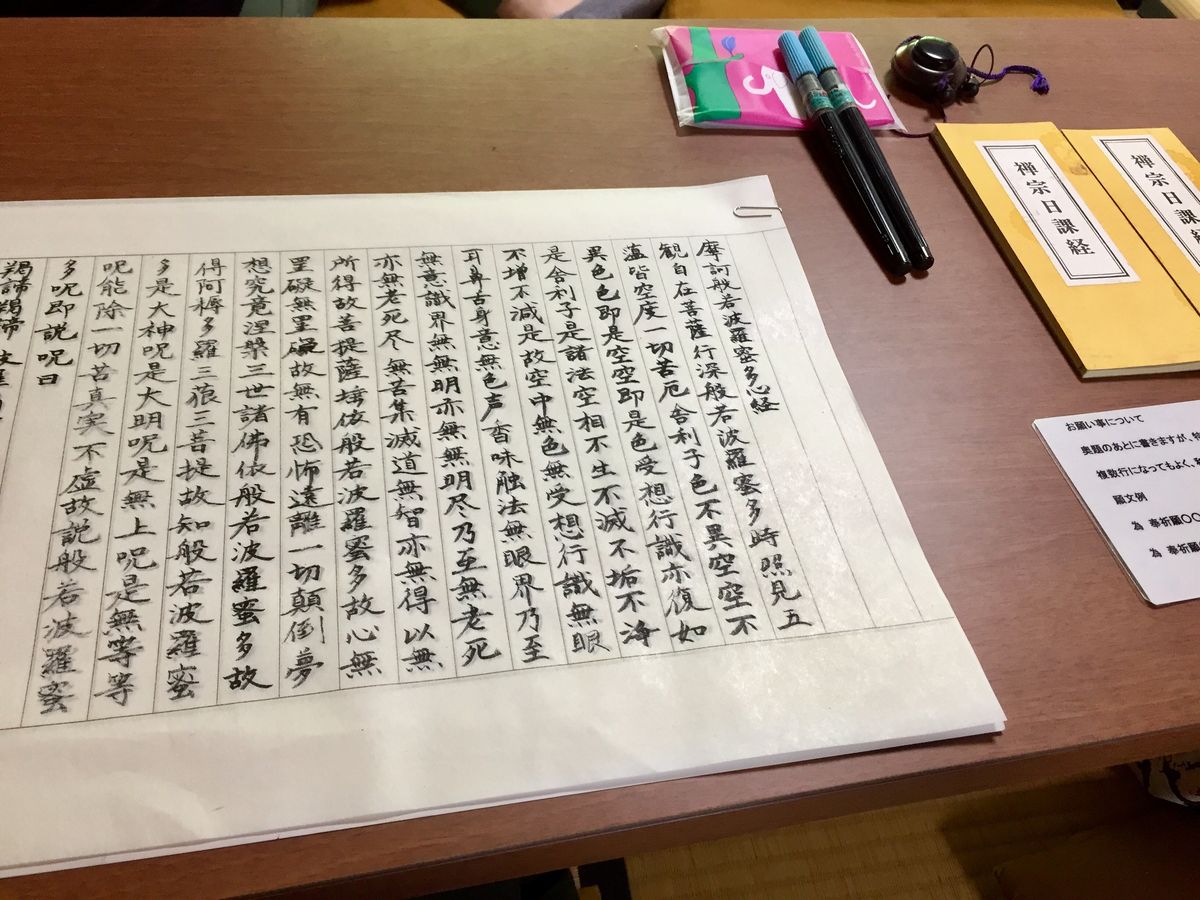 摩訶般若波羅蜜多心経
観自在菩薩行深般若波羅蜜多時照見五
蘊皆空度一切苦厄舎利子色不異空空不
異色色即是空空即是色受想行識亦復如
是舎利子是諸法空相不生不滅不垢不浄
不増不減是故空中無色無受想行識無眼
耳鼻舌身意無色声香味触法無眼界乃至
無意識界無無明亦無無明尽乃至無老死
亦無老死尽無苦集滅道無智亦無得以無
所得故菩提薩埵依般若波羅蜜多故心無
罣礙無罣礙故無有恐怖遠離一切顛倒夢
想究竟涅槃三世諸佛依般若波羅蜜多故
得阿耨多羅三藐三菩提故知般若波羅蜜
多是大神呪是大明呪是無上呪是無等等
呪能除一切苦真実不虚故説般若波羅蜜
多呪即説呪曰
羯諦羯諦
禅宗日課経
禅宗日課経
お願い事について
奥題のあとに書きますが、
複数行になってもよく、
願文例
為 奉祈願〇〇
為 奉祈願